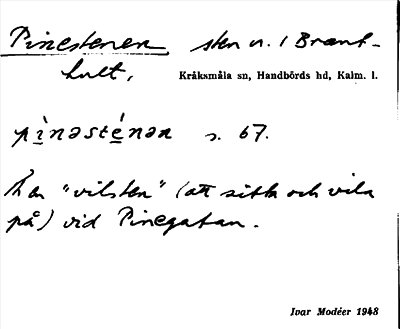 Pinestenen sten n. i Brant-
hult,
Kråksmåla sn, Handbörds hd, Kalm. l.
pìnəsténən s. 67.
En "vilsten" (att sitta och vila
på) vid Pinegatan.
Ivar Modéer 1943